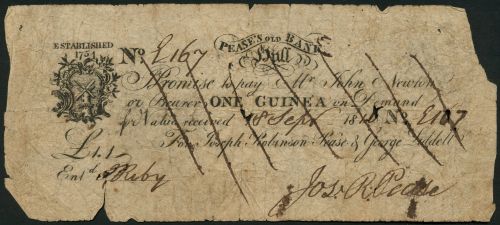 ESTABLISHED
1754
PEASE'S OLD BANK
Hull
No. E167
I Promise to pay Mr. John Newton
or Bearer ONE GUINEA on Demand
Value received 18 Sept 1818 No. E167
For Joseph Robinson Pease & George Liddell
£1.1.-
Entd. Ruby
Jos. R. Pease